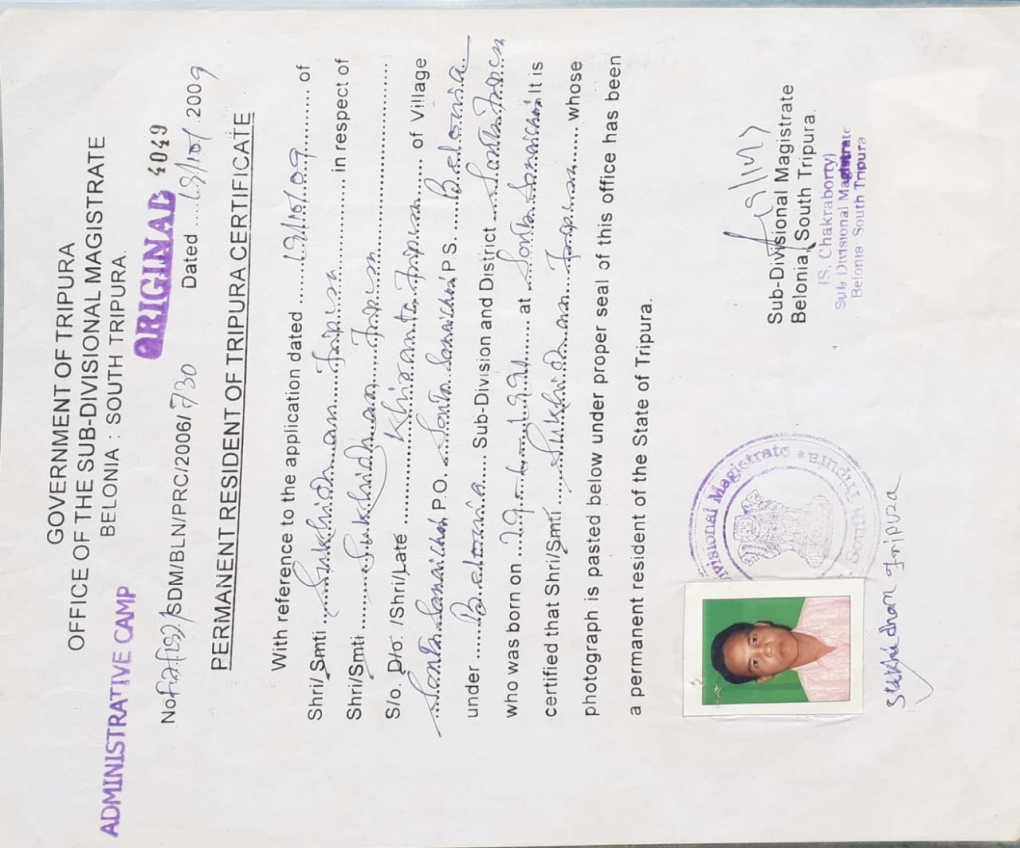 GOVERNMENT OF TRIPURA
OFFICE OF THE SUB-DIVISIONAL MAGISTRATE
BELONIA : SOUTH TRIPURA.
ADMINISTRATIVE CAMP
ORIGINAL 4049
/SDM/BLN/PRC/2006/730
Dated 19/10/2009
PERMANENT RESIDENT OF TRIPURA CERTIFICATE
With reference to the application dated 19/10/09 of
Shri/Smti Sukhidhan Tripura in respect of
Shri/Smti Sukhidhan Tripura
S/o. D/o. /Shri/Late Tripura of Village
Sonaichari P.O. Sonaichari P.S. Belonia
under Belonia Sub-Division and District South Tripura
who was born on 1991 at Sonaichari It is
certified that Shri/Smti Sukhidhan Tripura whose
photograph is pasted below under proper seal of this office has been
a permanent resident of the State of Tripura.
Sub-Divisional Magistrate
Belonia, South Tripura.
(S. Chakraborty)
Sub Divisional Magistrate
Belonia South Tripura
Divisional Magistrate * South Tripura
Sukhidhan Tripura